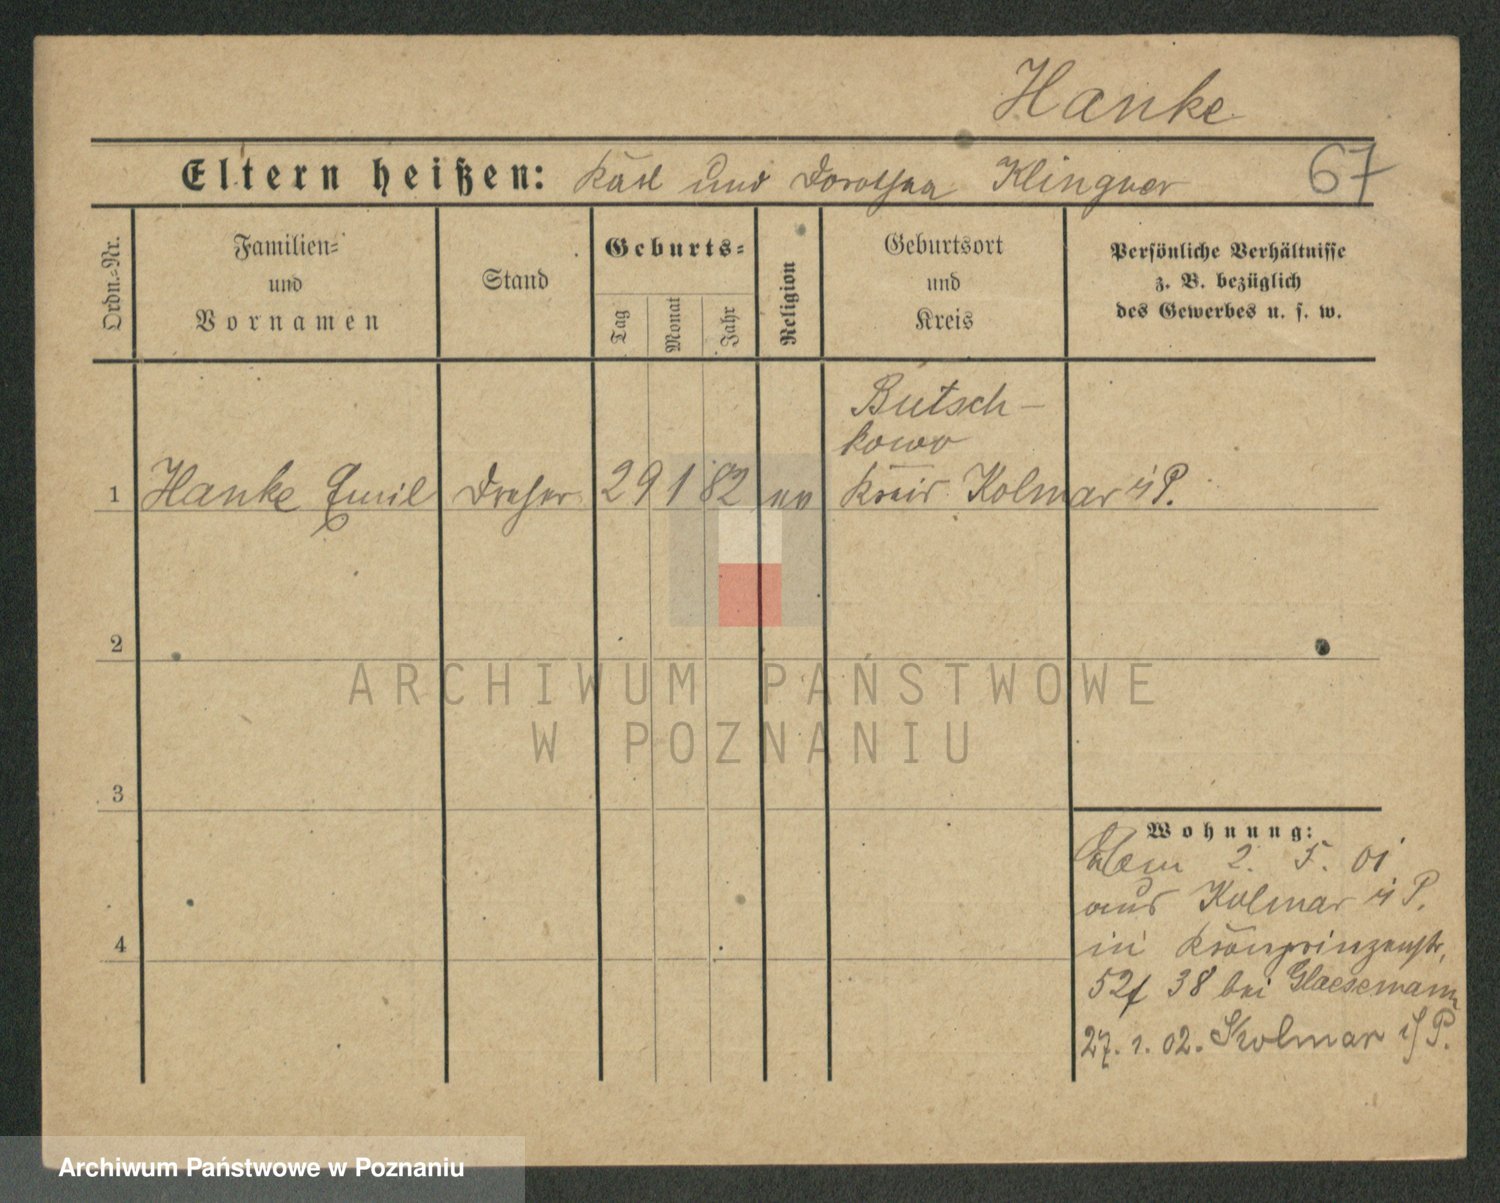 Hanke
Eltern heißen: Karl und Dorothea Klingner 67
Ordn.=Nr.
Familien=
und
Vornamen
Stand
Geburts=
Tag
Monat
Jahr
Religion
Geburtsort
und
Kreis
Persönliche Verhältnisse
z. B. bezüglich
des Gewerbes u. s. w.
Butsch-
kowo
1 Hanke Emil Dreher 29 1 82 ev Kreis Kolmar i/P.
2
3
4
Wohnung:
2. 5. 01
aus Kolmar i/P.
in Kronprinzenstr.
52f 38 bei Glaesemann
27. 1. 02. Kolmar i/P.
ARCHIWUM PAŃSTWOWE
W POZNANIU
Archiwum Państwowe w Poznaniu